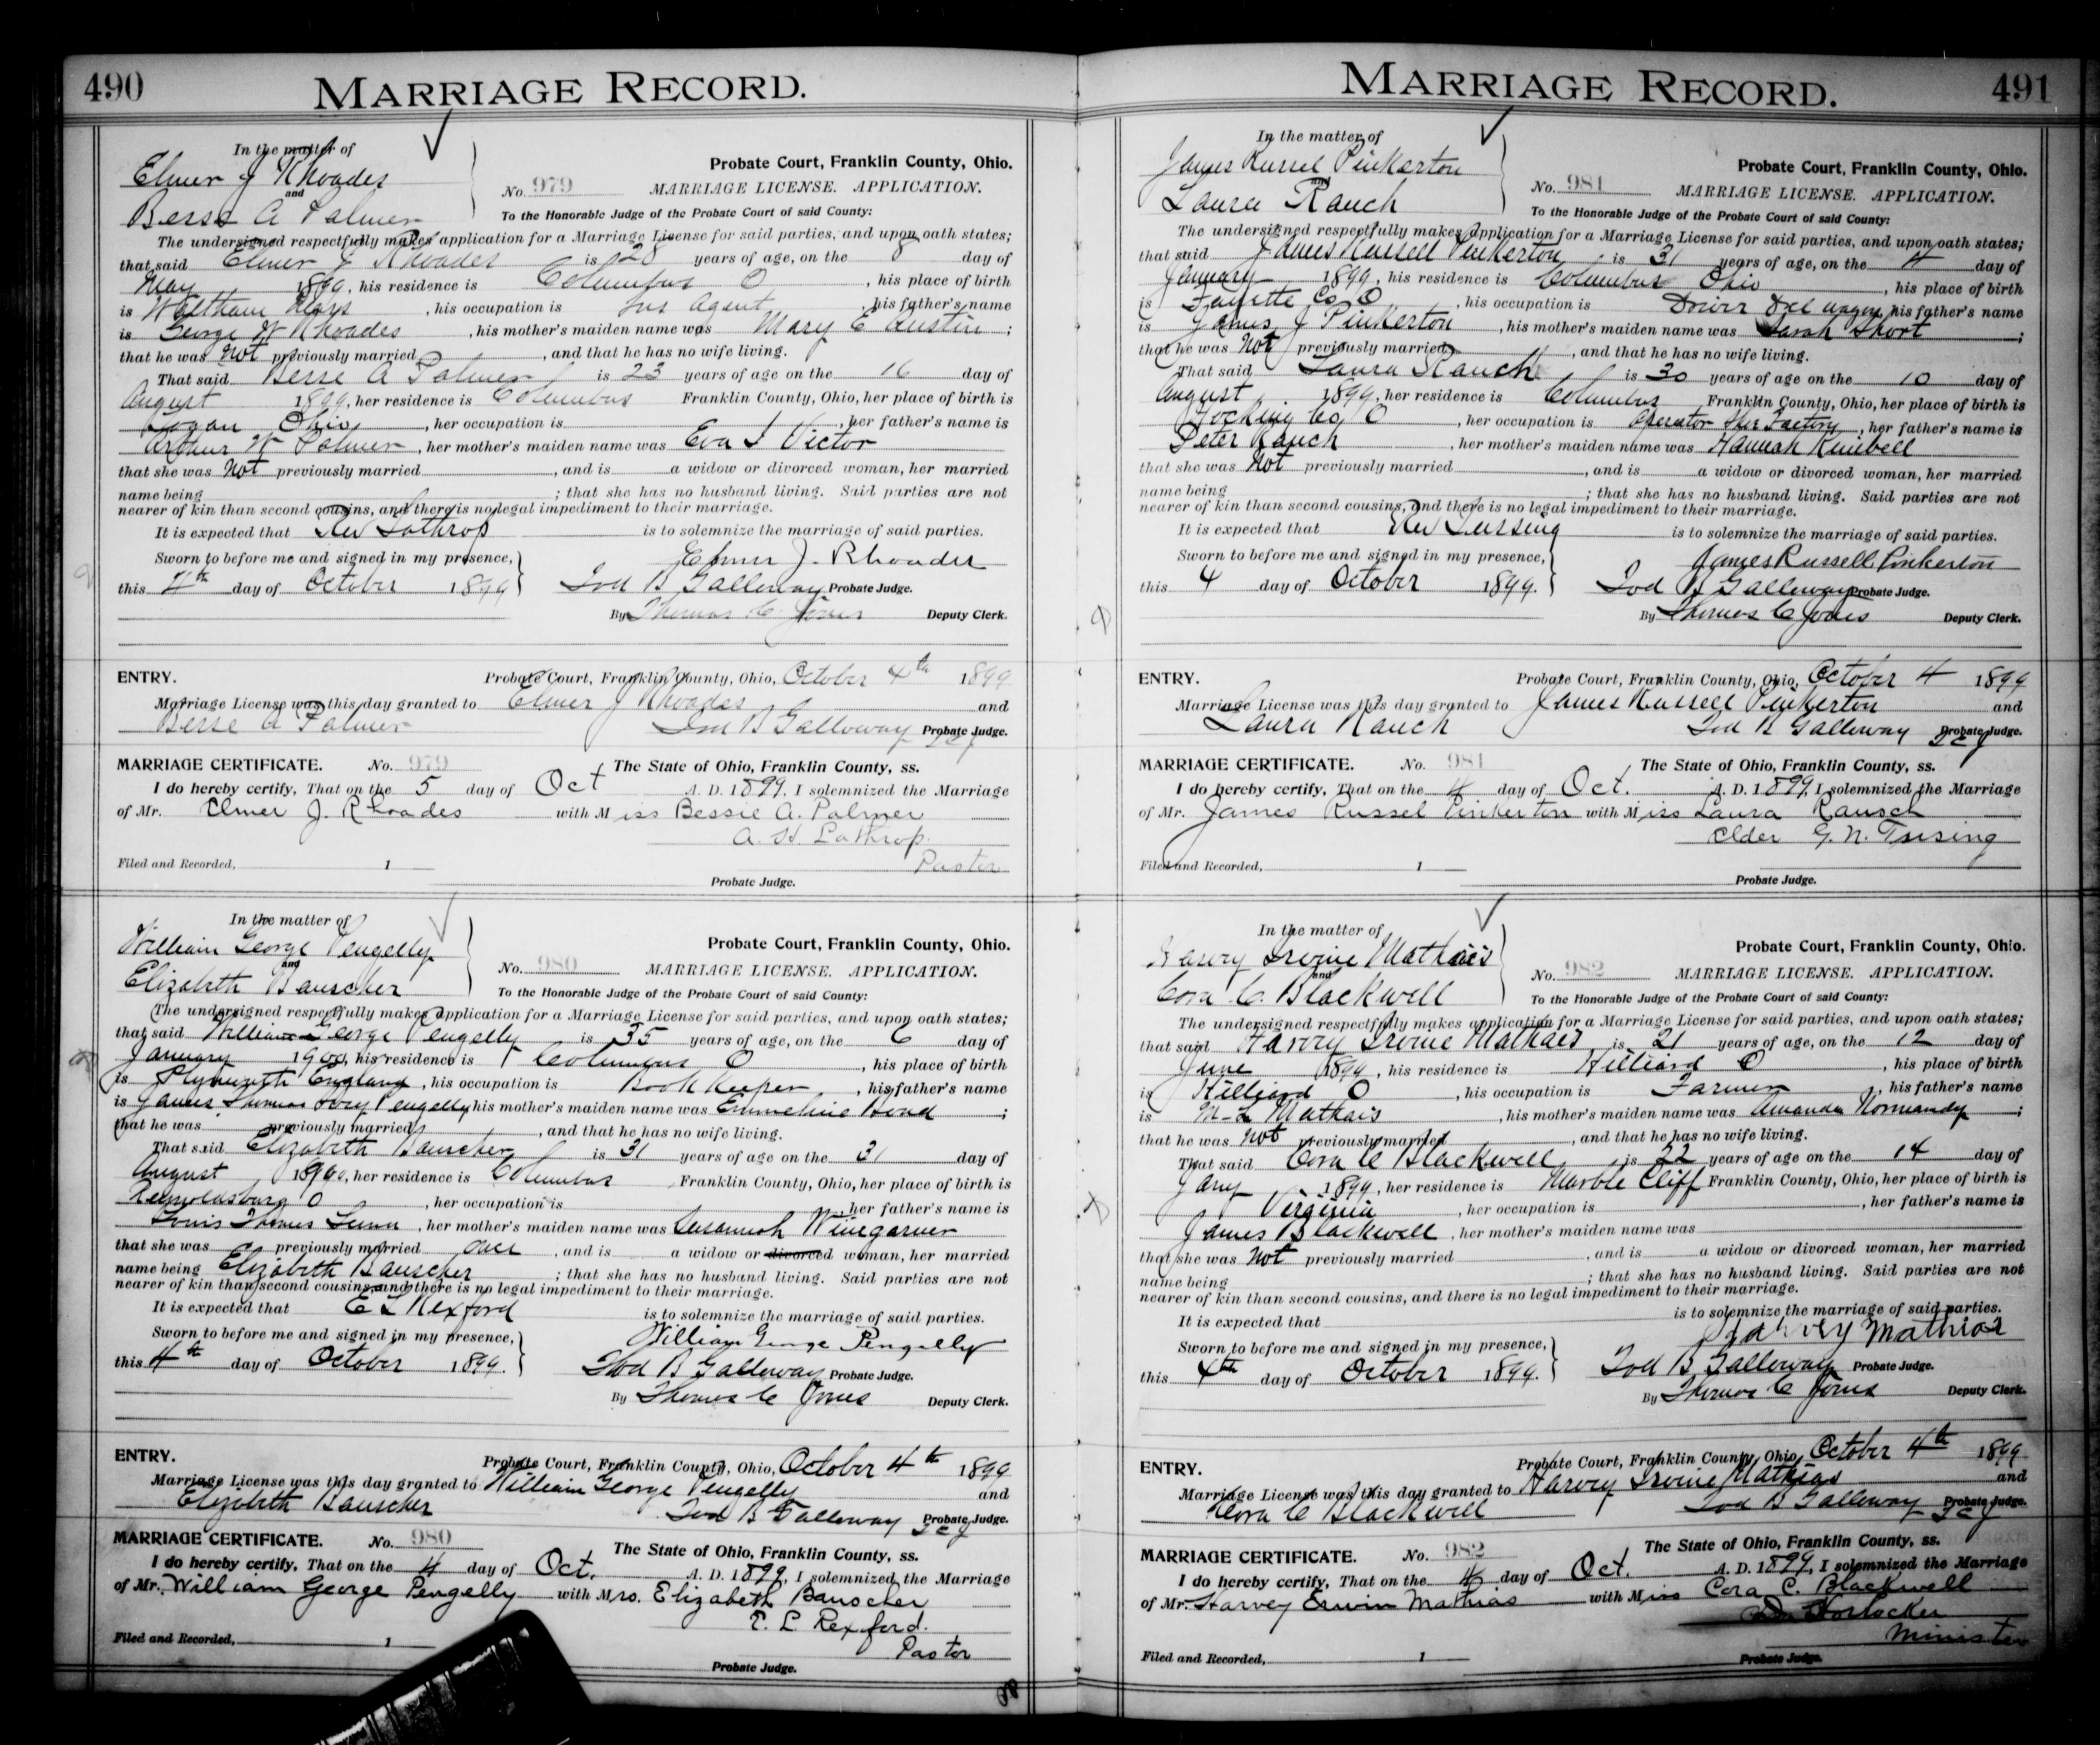 490
MARRIAGE RECORD.
In the matter of
Elmer J Rhoades
and
Besse A Palmer
Probate Court, Franklin County, Ohio.
No. 979 MARRIAGE LICENSE. APPLICATION.
To the Honorable Judge of the Probate Court of said County:
The undersigned respectfully makes application for a Marriage License for said parties, and upon oath states;
that said Elmer J Rhoades is 28 years of age, on the 8 day of
May 1899, his residence is Columbus O, his place of birth
is Waltham Mass, his occupation is Ins Agent, his father's name
is George W Rhoades, his mother's maiden name was Mary E Austin;
that he was not previously married, and that he has no wife living.
That said Besse A Palmer is 23 years of age on the 16 day of
August 1899, her residence is Columbus Franklin County, Ohio, her place of birth is
Logan Ohio, her occupation is, her father's name is
Arthur W Palmer, her mother's maiden name was Eva I Victor
that she was not previously married, and is a widow or divorced woman, her married
name being; that she has no husband living. Said parties are not
nearer of kin than second cousins, and there is no legal impediment to their marriage.
It is expected that Rev Lathrop is to solemnize the marriage of said parties.
Sworn to before me and signed in my presence, Elmer J. Rhoades
this 4th day of October 1899 Tod B Galloway Probate Judge.
By Thomas C Jones Deputy Clerk.
ENTRY. Probate Court, Franklin County, Ohio, October 4th 1899
Marriage License was this day granted to Elmer J Rhoades and
Besse A Palmer Tod B Galloway Probate Judge.
TCJ
MARRIAGE CERTIFICATE. No. 979 The State of Ohio, Franklin County, ss.
I do hereby certify, That on the 5 day of Oct A. D. 1899, I solemnized the Marriage
of Mr. Elmer J. Rhoades with Miss Bessie A. Palmer
A. H. Lathrop.
Filed and Recorded, 1 Pastor
Probate Judge.
In the matter of
William George Pengelly
and
Elizabeth Bauscher
Probate Court, Franklin County, Ohio.
No. 980 MARRIAGE LICENSE. APPLICATION.
To the Honorable Judge of the Probate Court of said County:
The undersigned respectfully makes application for a Marriage License for said parties, and upon oath states;
that said William George Pengelly is 35 years of age, on the 6 day of
January 1900, his residence is Columbus O, his place of birth
is Plymouth England, his occupation is Book Keeper, his father's name
is James Thomas Pengelly his mother's maiden name was Emmeline Bond;
that he was previously married, and that he has no wife living.
That said Elizabeth Bauscher is 31 years of age on the 31 day of
August 1900, her residence is Columbus Franklin County, Ohio, her place of birth is
Reynoldsburg O, her occupation is, her father's name is
Louis Thomas Lunn, her mother's maiden name was Susannah Winegarner
that she was previously married once, and is a widow or divorced woman, her married
name being Elizabeth Bauscher; that she has no husband living. Said parties are not
nearer of kin than second cousins, and there is no legal impediment to their marriage.
It is expected that E L Rexford is to solemnize the marriage of said parties.
Sworn to before me and signed in my presence, William George Pengelly
this 4th day of October 1899. Tod B Galloway Probate Judge.
By Thomas C Jones Deputy Clerk.
ENTRY. Probate Court, Franklin County, Ohio, October 4th 1899
Marriage License was this day granted to William George Pengelly and
Elizabeth Bauscher Tod B Galloway Probate Judge.
TCJ
MARRIAGE CERTIFICATE. No. 980 The State of Ohio, Franklin County, ss.
I do hereby certify, That on the 4 day of Oct. A. D. 1899, I solemnized the Marriage
of Mr. William George Pengelly with Mrs. Elizabeth Bauscher
E. L. Rexford.
Filed and Recorded, 1 Pastor
Probate Judge.
MARRIAGE RECORD. 491
In the matter of
James Russel Pinkerton
and
Laura Rauch
Probate Court, Franklin County, Ohio.
No. 981 MARRIAGE LICENSE. APPLICATION.
To the Honorable Judge of the Probate Court of said County:
The undersigned respectfully makes application for a Marriage License for said parties, and upon oath states;
that said James Russell Pinkerton is 31 years of age, on the 4 day of
January 1899, his residence is Columbus Ohio, his place of birth
is Fayette Co O, his occupation is Driver Del wagon, his father's name
is James J Pinkerton, his mother's maiden name was Sarah Short;
that he was not previously married, and that he has no wife living.
That said Laura Rauch is 30 years of age on the 10 day of
August 1899, her residence is Columbus Franklin County, Ohio, her place of birth is
Hocking Co O, her occupation is Operator Shoe Factory, her father's name is
Peter Rauch, her mother's maiden name was Hannah
that she was not previously married, and is a widow or divorced woman, her married
name being; that she has no husband living. Said parties are not
nearer of kin than second cousins, and there is no legal impediment to their marriage.
It is expected that Rev is to solemnize the marriage of said parties.
Sworn to before me and signed in my presence, James Russell Pinkerton
this 4 day of October 1899. Tod B Galloway Probate Judge.
By Thomas C Jones Deputy Clerk.
ENTRY. Probate Court, Franklin County, Ohio, October 4 1899
Marriage License was this day granted to James Russell Pinkerton and
Laura Rauch Tod B Galloway Probate Judge.
TCJ
MARRIAGE CERTIFICATE. No. 981 The State of Ohio, Franklin County, ss.
I do hereby certify, That on the 4 day of Oct. A. D. 1899, I solemnized the Marriage
of Mr. James Russel Pinkerton with Miss Laura Rausch
Elder G. N.
Filed and Recorded, 1
Probate Judge.
In the matter of
Harvy Irvine Mathais
and
Cora C. Blackwell
Probate Court, Franklin County, Ohio.
No. 982 MARRIAGE LICENSE. APPLICATION.
To the Honorable Judge of the Probate Court of said County:
The undersigned respectfully makes application for a Marriage License for said parties, and upon oath states;
that said Harvy Irvine Mathais is 21 years of age, on the 12 day of
June 1899, his residence is Hilliard O, his place of birth
is Hilliard O, his occupation is Farmer, his father's name
is M-L Mathais, his mother's maiden name was Amanda Normandy;
that he was not previously married, and that he has no wife living.
That said Cora C Blackwell is 22 years of age on the 14 day of
Jany 1899, her residence is Marble Cliff Franklin County, Ohio, her place of birth is
Virginia, her occupation is, her father's name is
James Blackwell, her mother's maiden name was
that she was not previously married, and is a widow or divorced woman, her married
name being; that she has no husband living. Said parties are not
nearer of kin than second cousins, and there is no legal impediment to their marriage.
It is expected that is to solemnize the marriage of said parties.
Sworn to before me and signed in my presence, Harvey Mathias
this 4th day of October 1899. Tod B Galloway Probate Judge.
By Thomas C Jones Deputy Clerk.
ENTRY. Probate Court, Franklin County, Ohio, October 4th 1899
Marriage License was this day granted to Harvey Irvine Mathias and
Cora C Blackwell Tod B Galloway Probate Judge.
TCJ
MARRIAGE CERTIFICATE. No. 982 The State of Ohio, Franklin County, ss.
I do hereby certify, That on the 4 day of Oct. A. D. 1899, I solemnized the Marriage
of Mr. Harvey Erwin Mathias with Miss Cora C. Blackwell
Horlocker
Minister
Filed and Recorded, 1
Probate Judge.